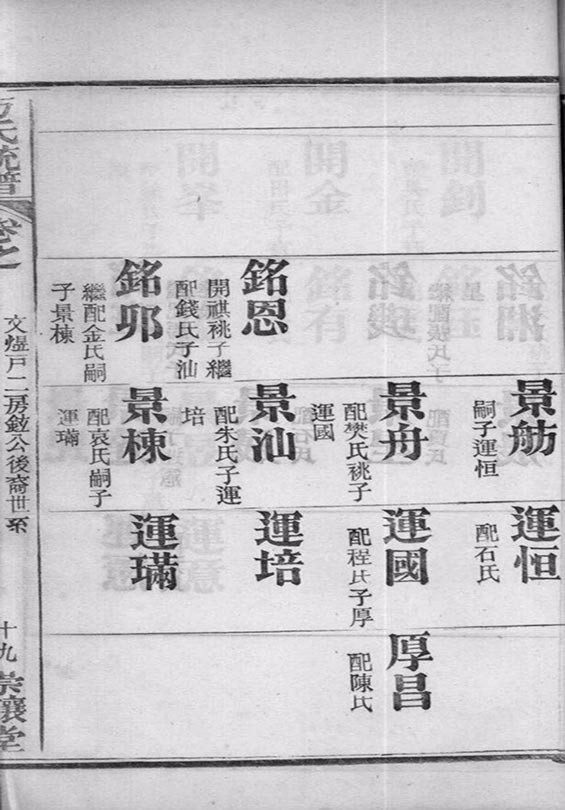 景舫
嗣子運恒
運恒
配石氏
景舟
配樊氏祧子
運國
運國
配程氏子厚
厚昌
配陳氏
銘恩
開祺祧子繼
配錢氏子汕
景汕
配朱氏子運
培
運培
銘邜
繼配金氏嗣
子景棟
景棟
配袁氏嗣子
運璊
運璊
氏統譜
卷之
文煜戸二房鉉公後裔世系
十九
堂